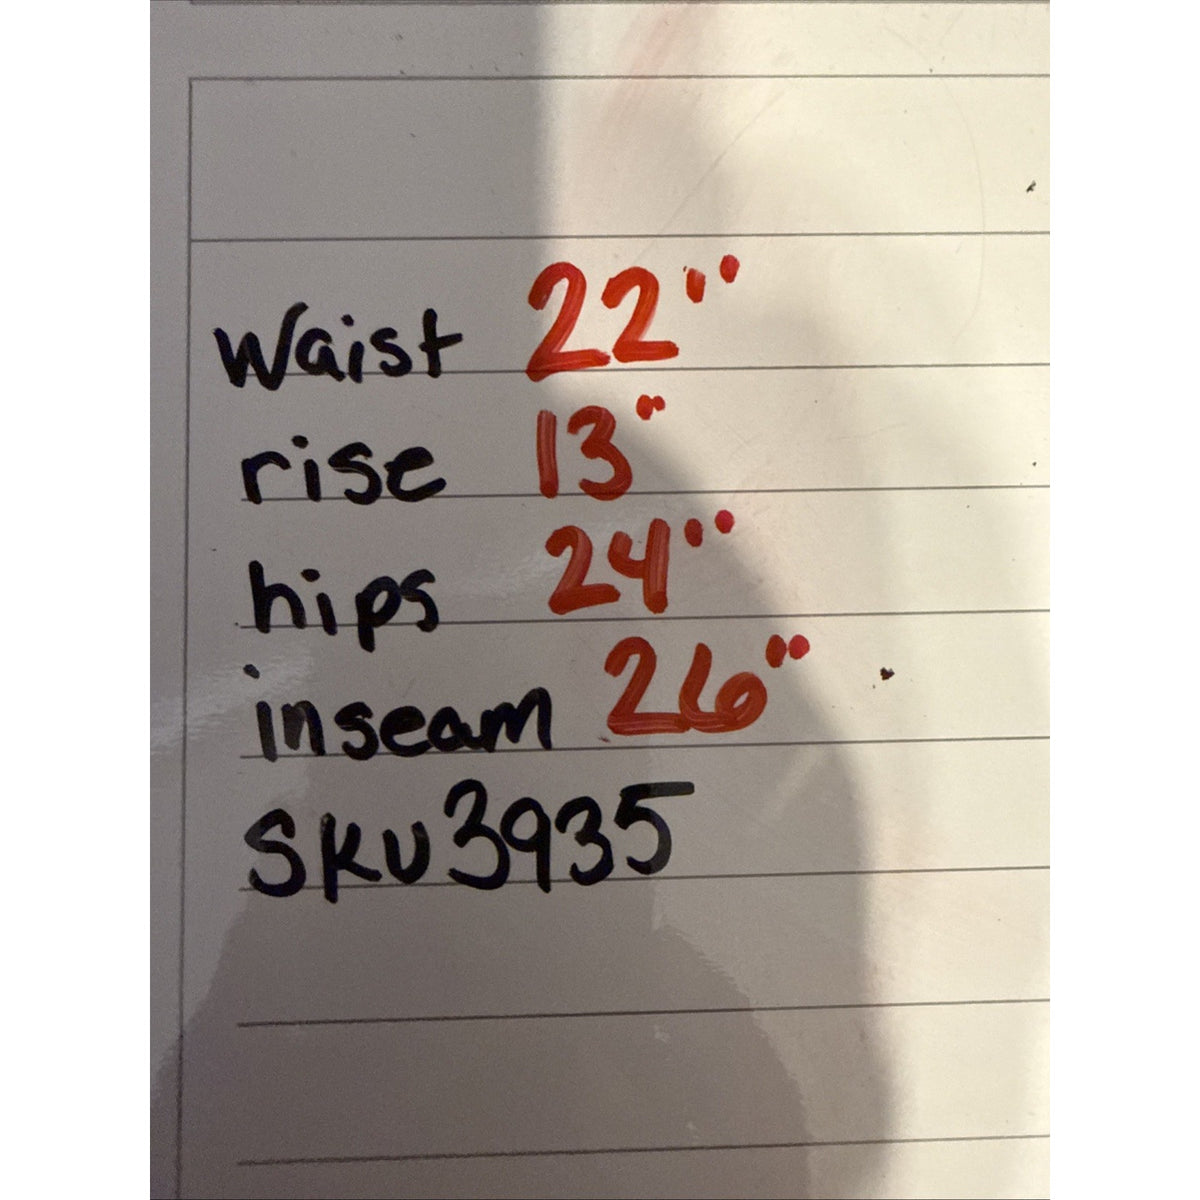 waist 22"
rise 13"
hips 24"
inseam 26"
SKU3935